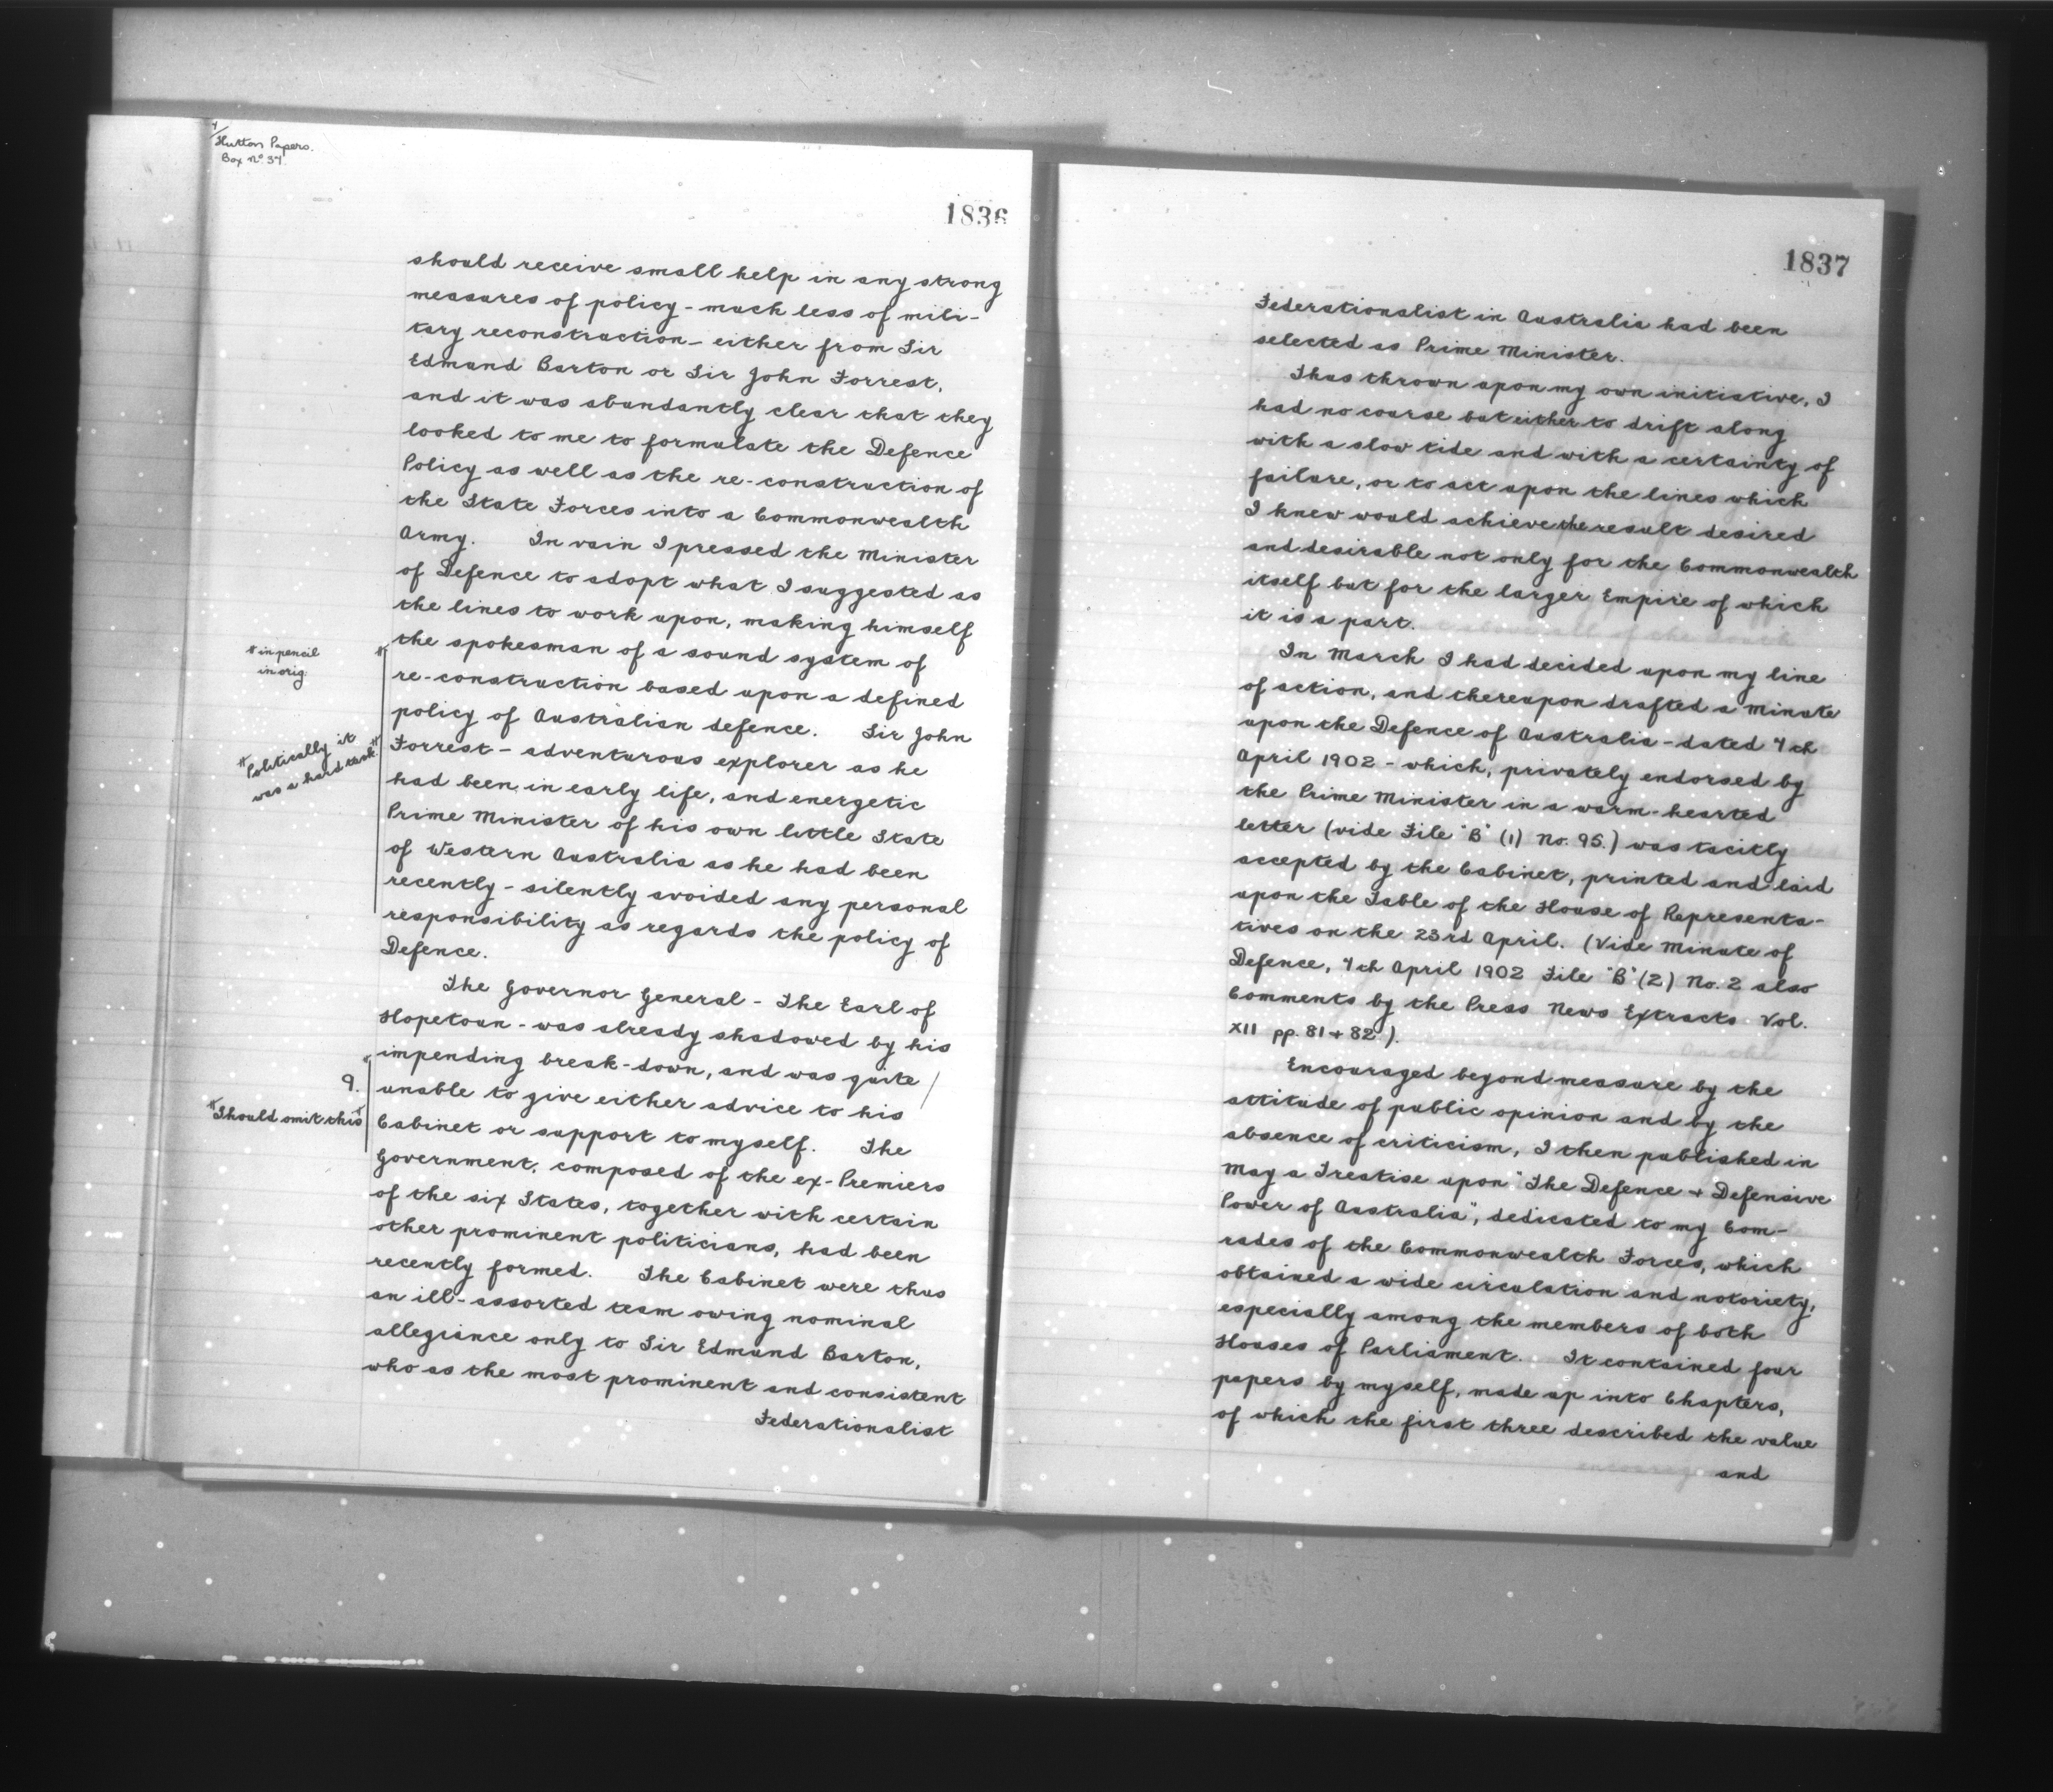 4/
Hutton Papers.
Box No. 37.
1836
should receive small help in any strong
measures of policy - much less of mili-
tary reconstruction - either from Sir
Edmund Barton or Sir John Forrest,
and it was abundantly clear that they
looked to me to formulate the Defence
Policy as well as the re-construction of
the State Forces into a Commonwealth
Army. In vain I pressed the Minister
of Defence to adopt what I suggested as
the lines to work upon, making himself
the spokesman of a sound system of
re-construction based upon a defined
policy of Australian defence. Sir John
Forrest - adventurous explorer as he
had been in early life, and energetic
Prime Minister of his own little State
of Western Australia as he had been
recently - silently avoided any personal
responsibility as regards the policy of
Defence.
# in pencil
in orig.
# Politically it
was a hard task #
The Governor General - The Earl of
Hopetoun - was already shadowed by his
impending break-down, and was quite /
unable to give either advice to his
Cabinet or support to myself. The
Government, composed of the ex-Premiers
of the six States, together with certain
other prominent politicians, had been
recently formed. The Cabinet were thus
an ill-assorted team owing nominal
allegiance only to Sir Edmund Barton,
who as the most prominent and consistent
Federationalist
9.
# Should omit this #
1837
Federationalist in Australia had been
selected as Prime Minister.
Thus thrown upon my own initiative, I
had no course but either to drift along
with a slow tide and with a certainty of
failure, or to act upon the lines which
I knew would achieve the result desired
and desirable not only for the Commonwealth
itself but for the larger Empire of which
it is a part.
In March I had decided upon my line
of action, and thereupon drafted a Minute
upon the Defence of Australia - dated 7th
April 1902 - which, privately endorsed by
the Prime Minister in a warm-hearted
letter (vide File "B" (1) No. 95.) was tacitly
accepted by the Cabinet, printed and laid
upon the Table of the House of Representa-
tives on the 23rd April. (Vide Minute of
Defence, 7th April 1902 File "B" (2) No. 2 also
Comments by the Press News Extracts Vol.
XII pp. 81 + 82).
Encouraged beyond measure by the
attitude of public opinion and by the
absence of criticism, I then published in
May a Treatise upon "The Defence + Defensive
Power of Australia", dedicated to my Com-
rades of the Commonwealth Forces, which
obtained a wide circulation and notoriety,
especially among the members of both
Houses of Parliament. It contained four
papers by myself, made up into Chapters,
of which the first three described the value
and